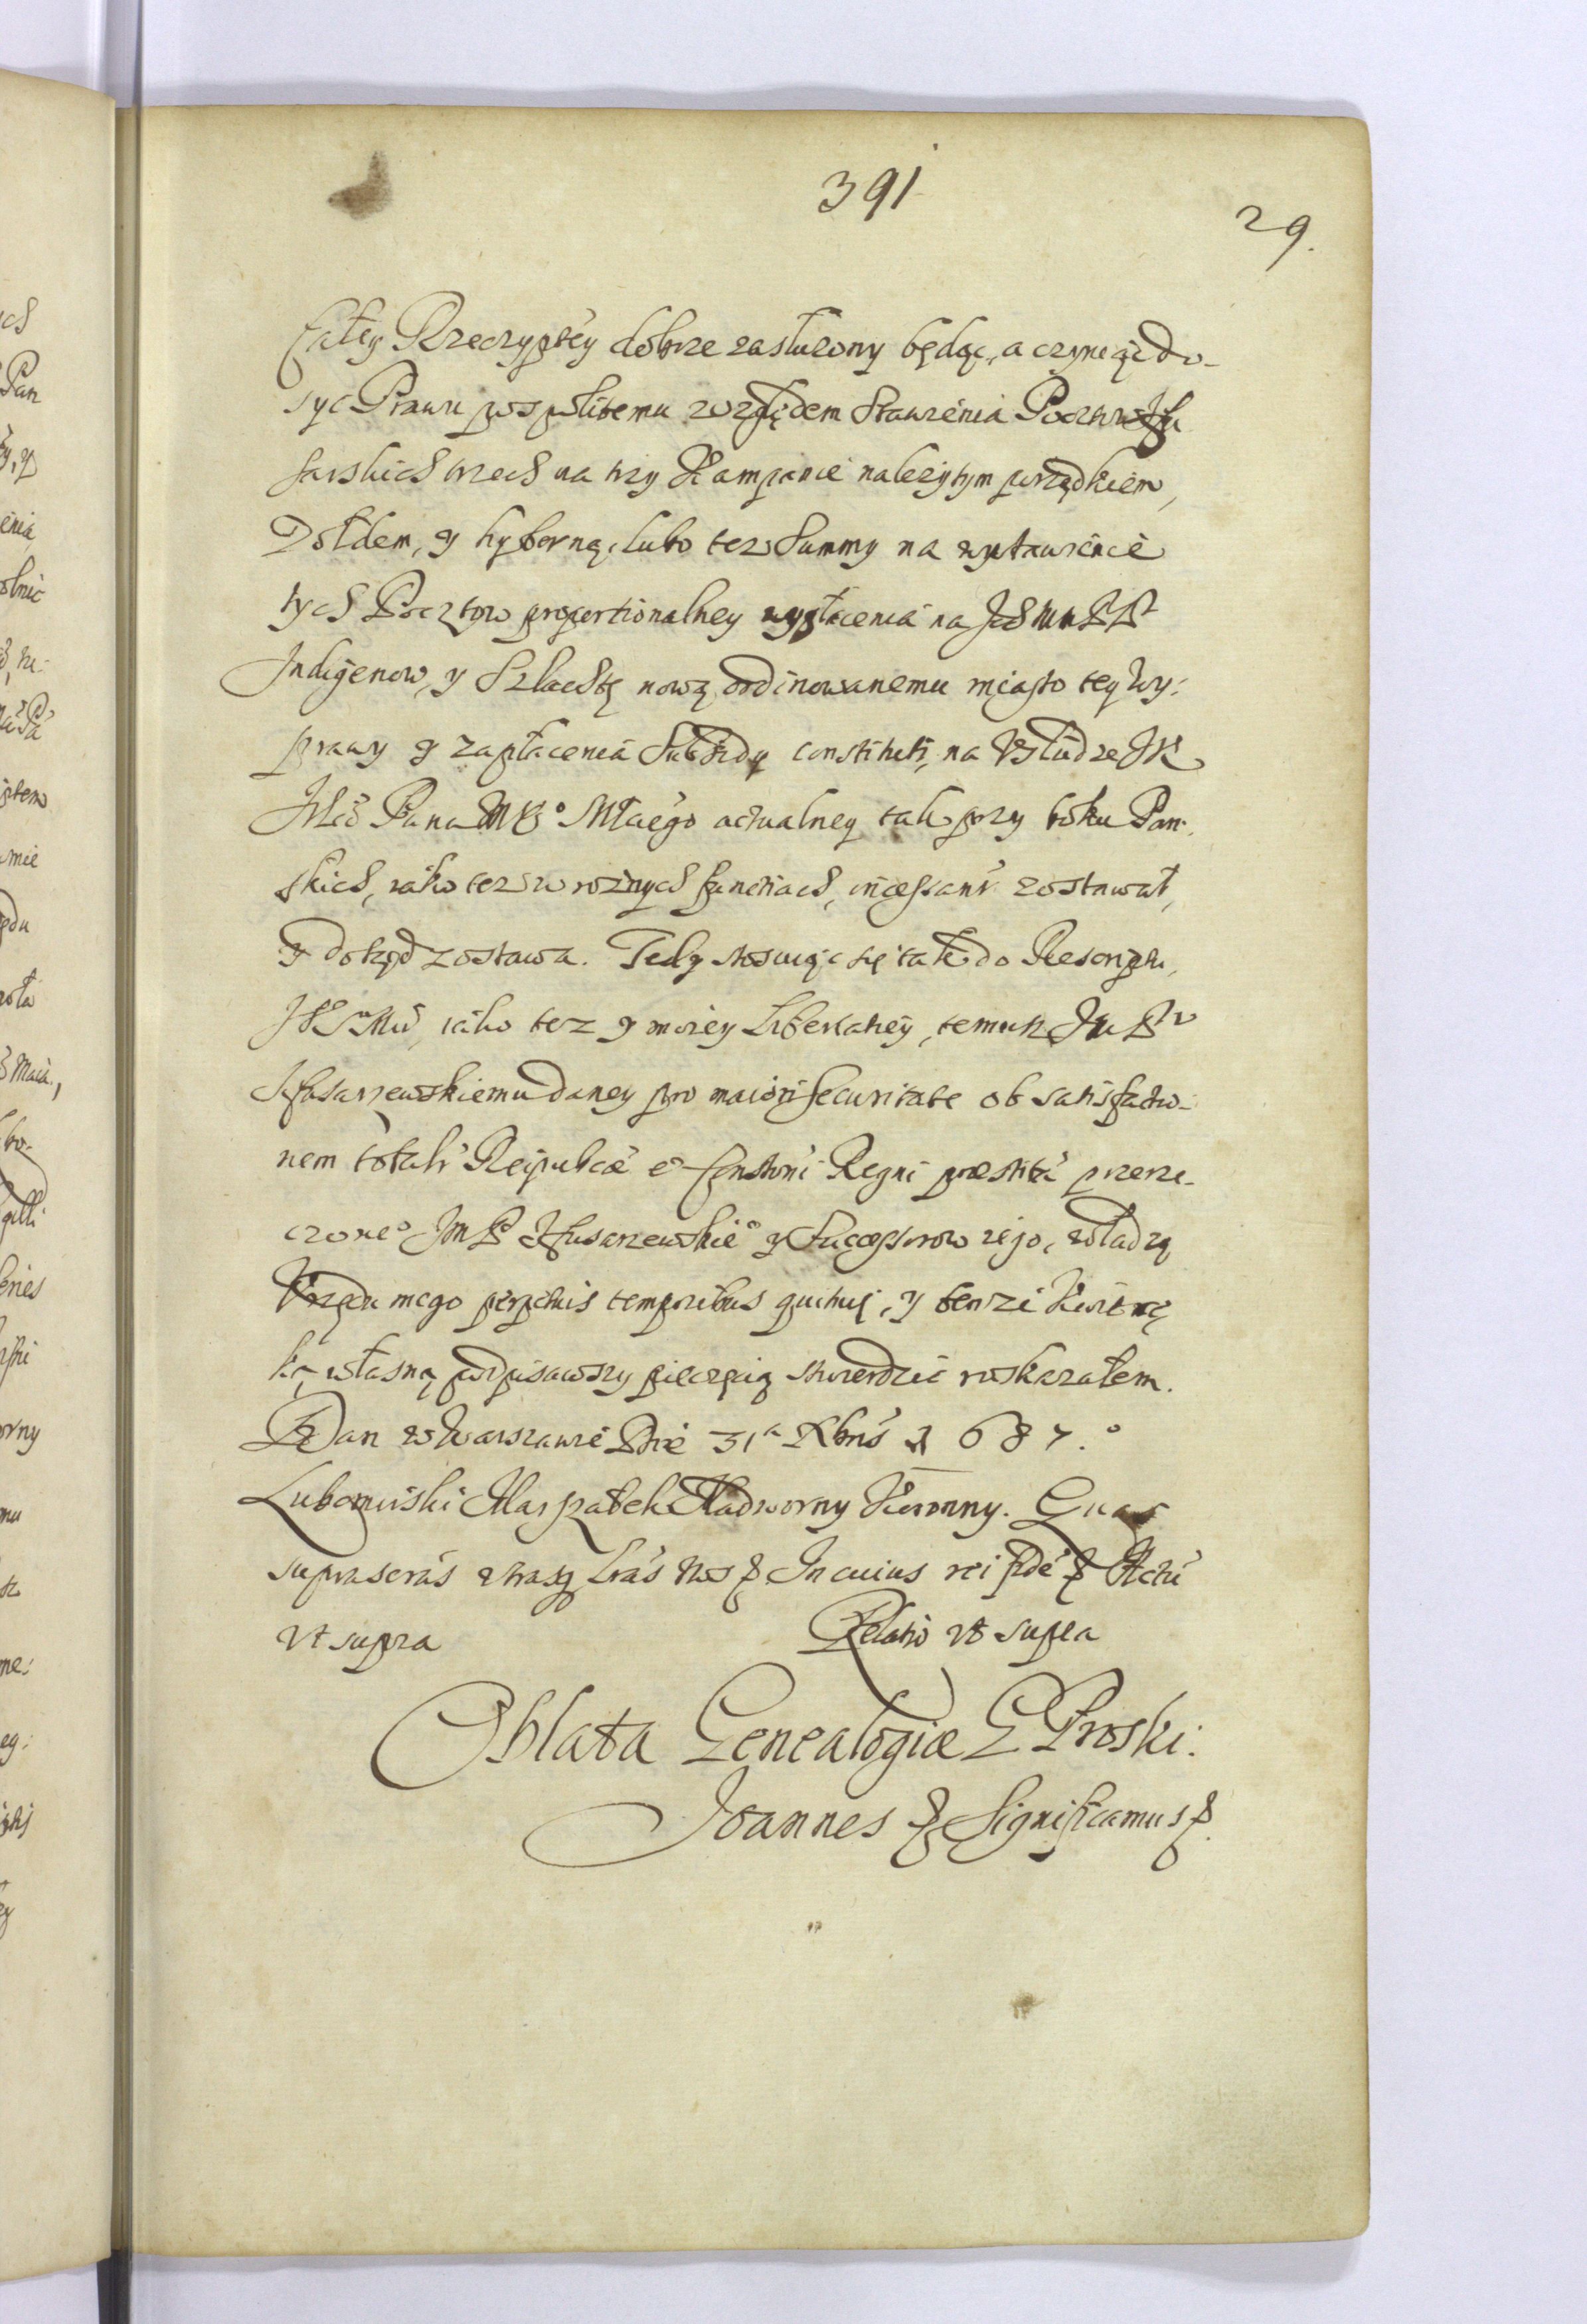 391
29.
Całey Rzeczyptey dobrze zasłuzony będąc, a czyniąc do-
syc Prawu pospolitemu względem stawienia Pocztow Hu
sarskich trzech na trzy Kampanie nalezytym porządkiem,
Zołdem, y hyberną, lubo tez summy na wystawienie
tych Pocztow proportionalney wypłacenia na Ich Mm PP
Indigenow, y Szlachtę nową ordinowanemu miasto tey wy:
prawy y zapłacenia Subsidy constituti, na Usłudze JK
Mci Pana M&o Młaego actualney tak przy boku Pan:
skich, iako tez w roznych functiach, incessant zostawał,
y dotąd zostawa. Tedy stosuiąc się tak do Rescriptu,
JKMci, iako tez y moiey Libertatiey, temuz Jm Pu
Husarzewskiemu daney pro maiori securitate ob satisfactio-
nem totali Reipublcæ e Constoni Regni præstita przerze-
czoneo Jm P Husarzewskieo y Successorow iego, władzą
Urzędu mego perpetuis temporibus quituię, y ten zi Kwit rę
ką własną podpisawszy pieczęcią stwierdzic roskazałem.
Dan w Warszawie Die 31a Xbris 1687.o
Lubomirski Marszałek Nadworny Koronny. Quas
suprascras Lras Nos & In cuius rei fide & Actu
Vt supra Relatio vt supra
Oblata Genealogiæ G Proski.
Joannes & Significamus &.